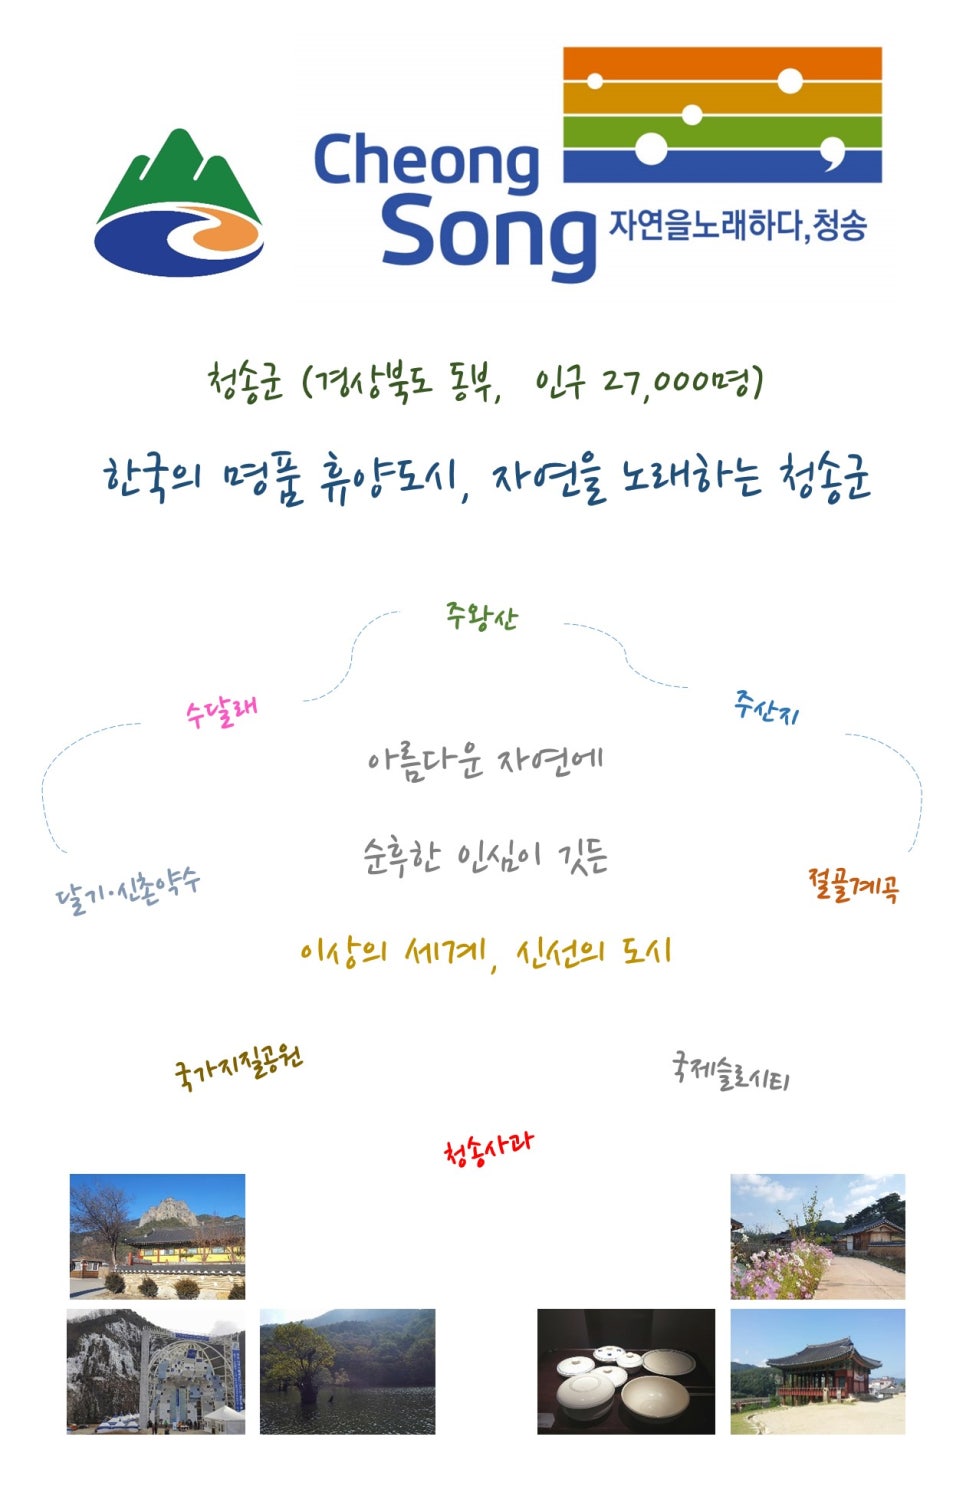 Cheong
Song
자연을노래하다,청송
청송군 (경상북도 동부, 인구 27,000명)
한국의 명품 휴양도시, 자연을 노래하는 청송군
주왕산
수달래
주산지
아름다운 자연에
순후한 인심이 깃든
달기·신촌약수
절골계곡
이상의 세계, 신선의 도시
국가지질공원
국제슬로시티
청송사과